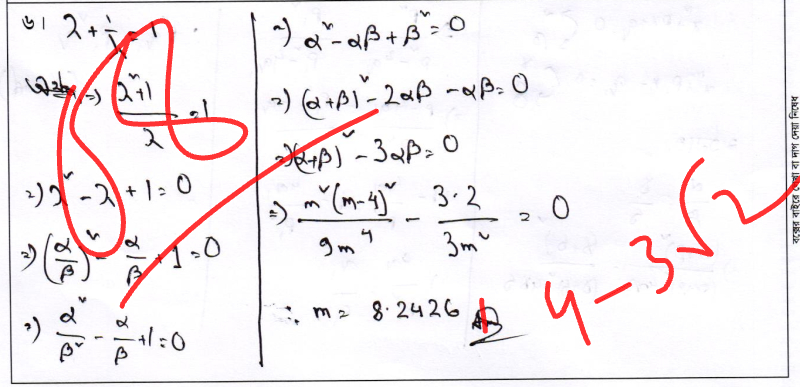 ৬। λ + 1/λ = 1
=> (λ²+1)/λ = 1
=> λ² - λ + 1 = 0
=> (α/β)² - α/β + 1 = 0
=> α²/β² - α/β + 1 = 0
=> α² - αβ + β² = 0
=> (α+β)² - 2αβ - αβ = 0
=> (α+β)² - 3αβ = 0
=> m²(m-4)²/9m⁴ - 3·2/3m² = 0
∴ m = 8.2426
4 - 3√2
বক্সের বাইরে লেখা বা দাগ দেয়া নিষেধ